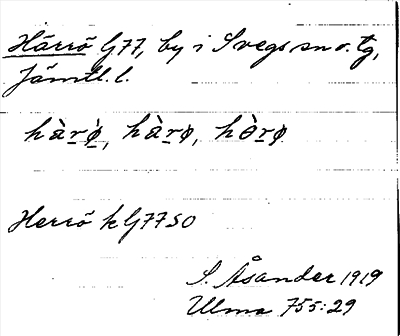 Härrö G77, by i Svegs sn o. tg,
Jämtl. l.
hàrø̀, hàrø, hòrø
Herrö k G77SO
S. Åsander 1919
Ulma 755:29